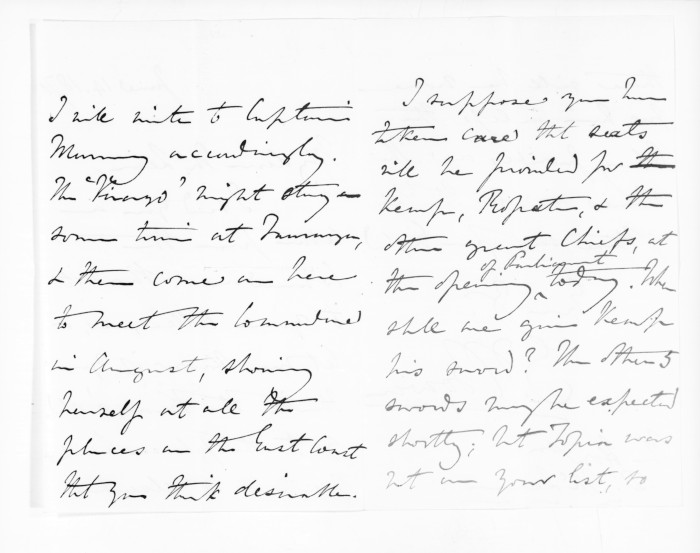 I will write to Captain
Manning accordingly.
The "Virago" might stay a
some time at Tauranga,
& then come on here
to meet the Commodore
in August, showing
herself at all the
places on the East Coast
tht you think desirable.
I suppose you have
taken care tht seats
will be provided for the
Kemp, Ropata, & the
other great Chiefs, at
the opening of Parliament today. When
shll we give Kemp
his sword? The other 5
swords may be expected
shortly; but Topia was
not on your list, so